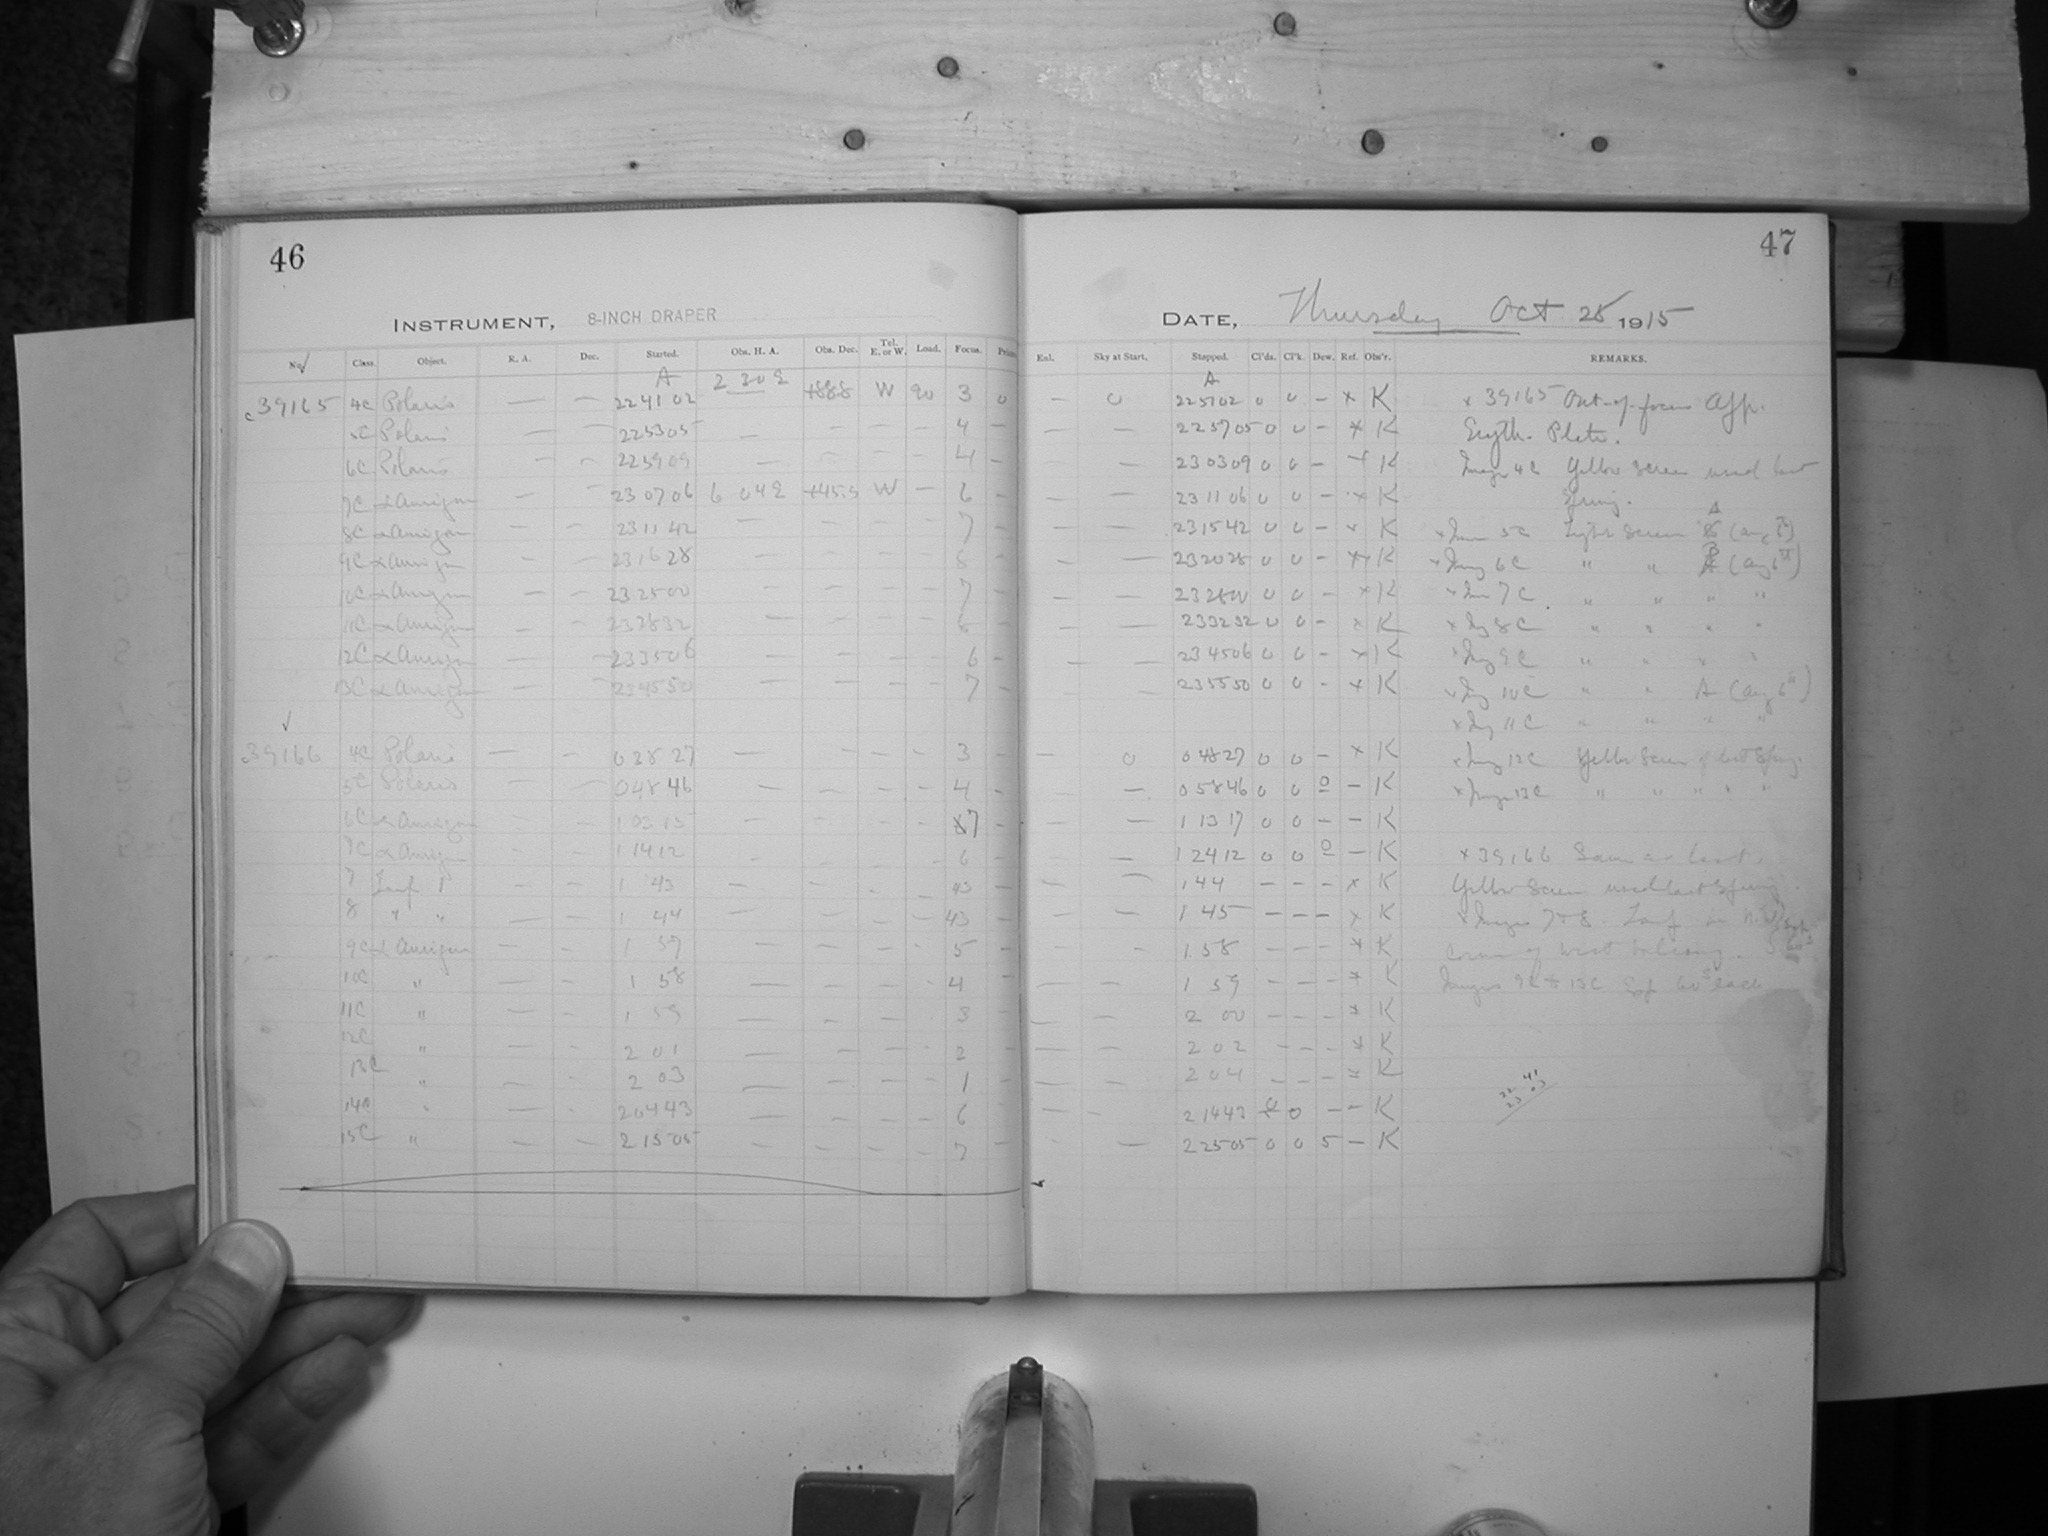 46
INSTRUMENT, 8-INCH DRAPER
No. Class Object. R. A. Dec. Started. Obs. H. A. Obs. Dec. Tel. E. or W. Load. Focus.
A
c39165 4C Polaris — — 224102 2 30 E +88.8 W 90 3 0
5C Polaris — — 225305 — 4 —
6C Polaris — — 225909 — — — — — 4 —
7C α Aurigae — — 230706 6 04 E +45.9 W — 6 —
8C α Aurigae — — 231142 — — — — 7 —
9C α Aurigae — — 231628 — — — —
10C α Aurigae — — 232500 — — — — 7 —
11C α Aurigae 232832 — — — —
12C α Aurigae — — 233506 — — — — 6 —
13C α Aurigae — — 234550 — — — — 7 —
c39166 4C Polaris — — 03827 — — — — 3
5C Polaris 04846 — — — — 4 —
6C α Aurigae 10315 — 7 —
7C α Aurigae 11412 6
7 1 — — 1 43 — — — — 43 —
8 " " — — 1 44 — — — — 43 —
9C α Aurigae — — 1 57 — — — — 5 —
10C " — — 1 58 — — — 4 —
11C " — — 1 59 — — — 3 —
12C " — — 2 01 — — — — 2 —
13C " — — 2 03 — — — — 1 —
14C " — — 20443 — — — — 6 —
15C " — — 21505 — — — — 7 —
47
DATE, Thursday Oct 28 1915
Enl. Sky at Start. Stopped. Cl'ds. Cl'k. Dew. Ref. Obs'r. REMARKS.
A
— 0 225102 0 0 — × K × 39165 Out-of-focus App.
— — 225705 0 0 — × K Eryth. Plate.
— — 230309 0 0 — × K Image 4C Yellow Screen used last
— — 231106 0 0 — × K Spring.
— — 231542 0 0 — × K 5C Light Screen A (Aug 6th)
— — 232028 0 0 — × K × Image 6C " " B (Aug 6th)
— — 232900 0 0 — × K × 7C " " " "
— — 233232 0 0 — × K × 8C " " " "
— — 234506 0 0 — × K × 9C " " " "
— 235550 0 0 — × K × 10C " " A (Aug 6th)
× 11C " " " "
— 0 04827 0 0 — × K × 12C Yellow Screen of last Spring.
— — 05846 0 0 0 — K × Image 13C " " " " "
— — 11317 0 0 — — K
— — 12412 0 0 0 — K × 39166 Same as last.
— — 144 — — — × K Yellow Screen used last Spring.
— — 145 — — — × K × Images 7 & 8.
— — 1 58 — — — × K corner of west balcony.
— — 1 59 — — — × K Images 9C to 13C Exp 60s each
— — 2 00 — — — × K
— — 2 02 — — — × K
— — 2 04 — — — × K
— — 21443 0 — — K
— — 22505 0 0 5 — K
22 41
23 03